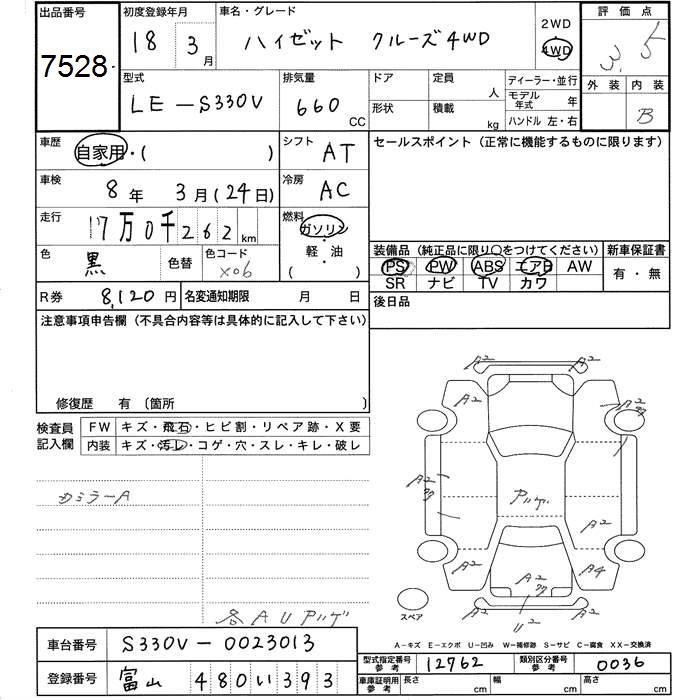 出品番号 初度登録年月 車名・グレード 2WD 評価点
7528 18 3月 ハイゼット クルーズ4WD 4WD 3.5
型式 排気量 ドア 定員 人 ディーラー・並行 外装 内装
LE-S330V 660 CC 形状 積載 kg モデル年式 年 B
ハンドル 左・右
車歴 自家用・( ) シフト AT セールスポイント(正常に機能するものに限ります)
車検 8年 3月(24日) 冷房 AC
走行 17万0千262km 燃料 ガソリン
軽・油
( )
色 黒 色替 色コード X06
装備品(純正品に限り○をつけてください) 新車保証書
PS PW ABS エアB AW 有・無
SR ナビ TV カワ
R券 8,120円 名変通知期限 月 日 後日品
注意事項申告欄(不具合内容等は具体的に記入して下さい)
修復歴 有 〔箇所 〕
検査員記入欄 FW キズ・飛石・ヒビ割・リペア跡・X要
内装 キズ・汚レ・コゲ・穴・スレ・キレ・破レ
ミラーA
A2 A2
A2 A2
A2
A2
A2 A4
A2
U2
スペア
各AUアリ
A-キズ E-エクボ U-凹み W-補修跡 S-サビ C-腐食 XX-交換済
車台番号 S330V-0023013
型式指定番号 参考 12762 類別区分番号 参考 0036
登録番号 富山 480い393
車庫証明用 参考 長さ cm 幅 cm 高さ cm